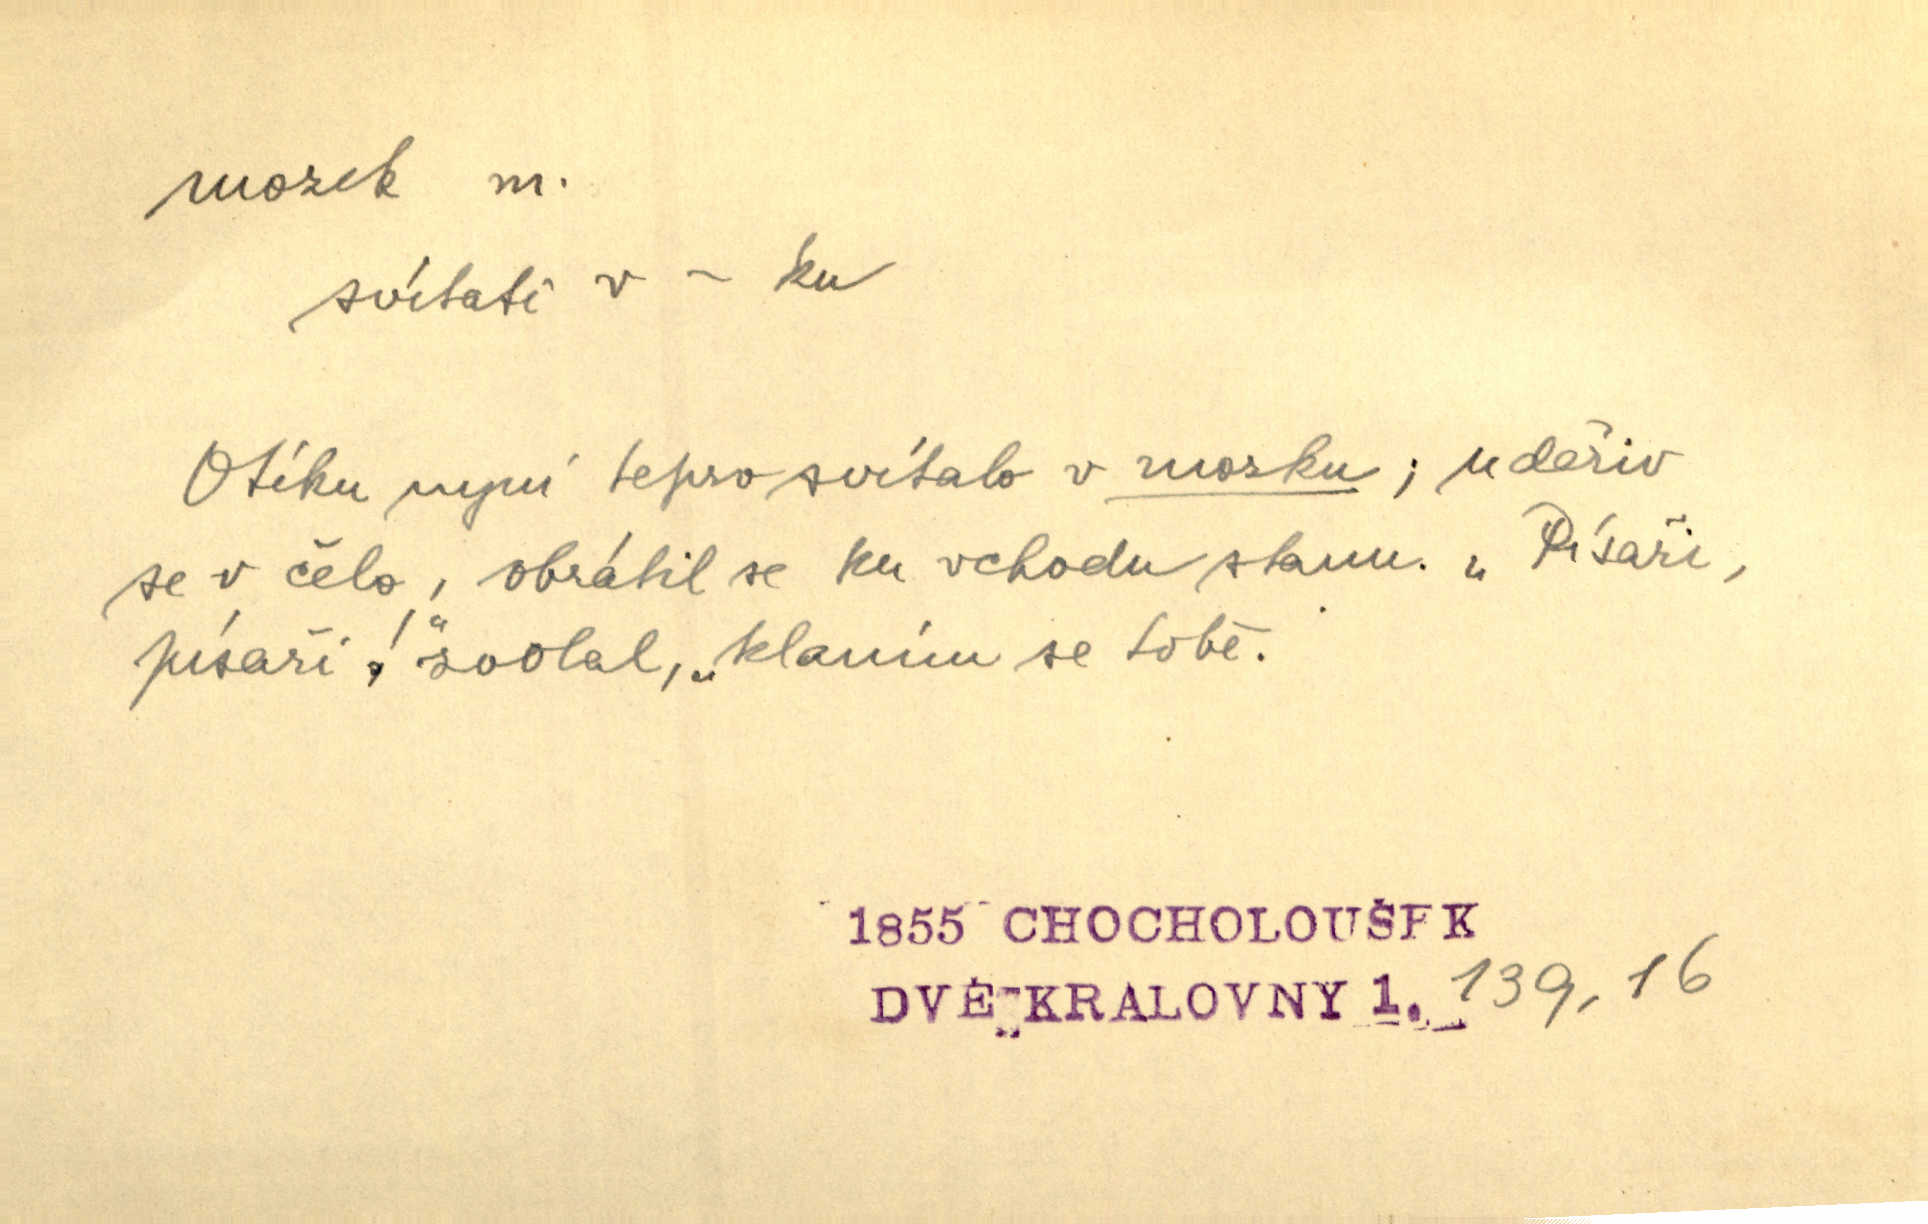 mozek m.
svítati v ~ ku
Otíku nyní tepro svítalo v mozku; udeřiv
se v čelo, obrátil se ku vchodu stanu. „Písaři,
písaři!“ zvolal, „klaním se tobě.
1855 CHOCHOLOUŠEK
DVĚ KRALOVNY 1. 139, 16